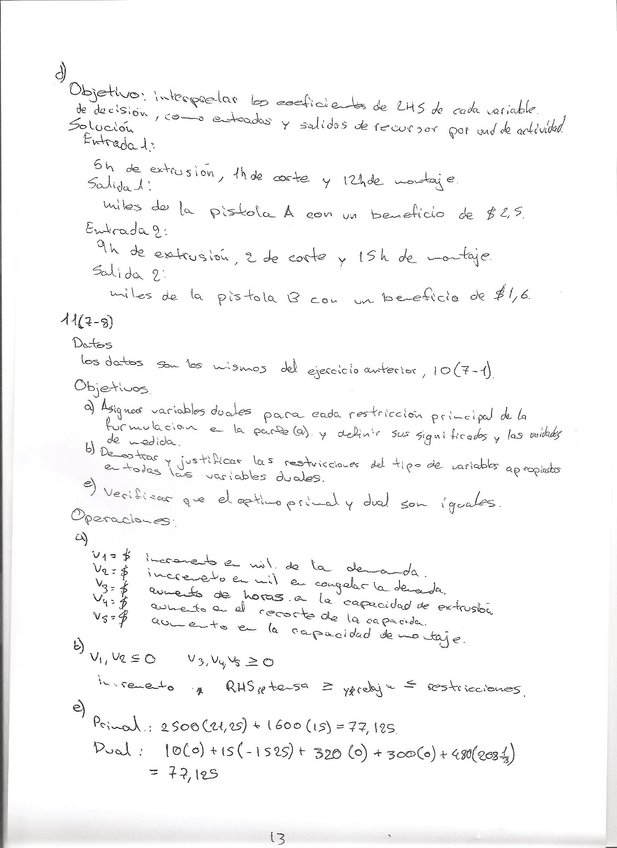 d)
Objetivo: interpretar los coeficientes de LHS de cada variable
de decisión, como entradas y salidas de recursos por und de actividad.
Solución
Entrada 1:
5h de extrusión, 1h de corte y 12h de montaje.
Salida 1:
miles de la pistola A con un beneficio de $2,5.
Entrada 2:
9h de extrusión, 2 de corte y 15h de montaje.
Salida 2:
miles de la pistola B con un beneficio de $1,6.
11(7-8)
Datos
Los datos son los mismos del ejercicio anterior, 10(7-1).
Objetivos.
a) Asignar variables duales para cada restricción principal de la
formulacion en la parte(a) y definir sus significados y las unidades
de medida.
b) Demostrar y justificar las restricciones del tipo de variables apropiados
en todas las variables duales.
e) Verificar que el optimo primal y dual son iguales.
Operaciones:
a)
V1 = $ incremento en mil. de la demanda.
V2 = $ incremeto en mil en congelar la demanda.
V3 = $ aumento de horas a la capacidad de extrusión
V4 = $ aumento en el recorte de la capacida.
V5 = $ aumento en la capacidad de montaje.
b)
V1, V2 ≤ 0 V3, V4, V5 ≥ 0
incremento RHS ≥ y ≤ restricciones.
e)
Primal: 2500(21,25) + 1600(15) = 77,125.
Dual: 10(0) + 15(-1525) + 320(0) + 300(0) + 480(208 1/3)
= 77,125
13